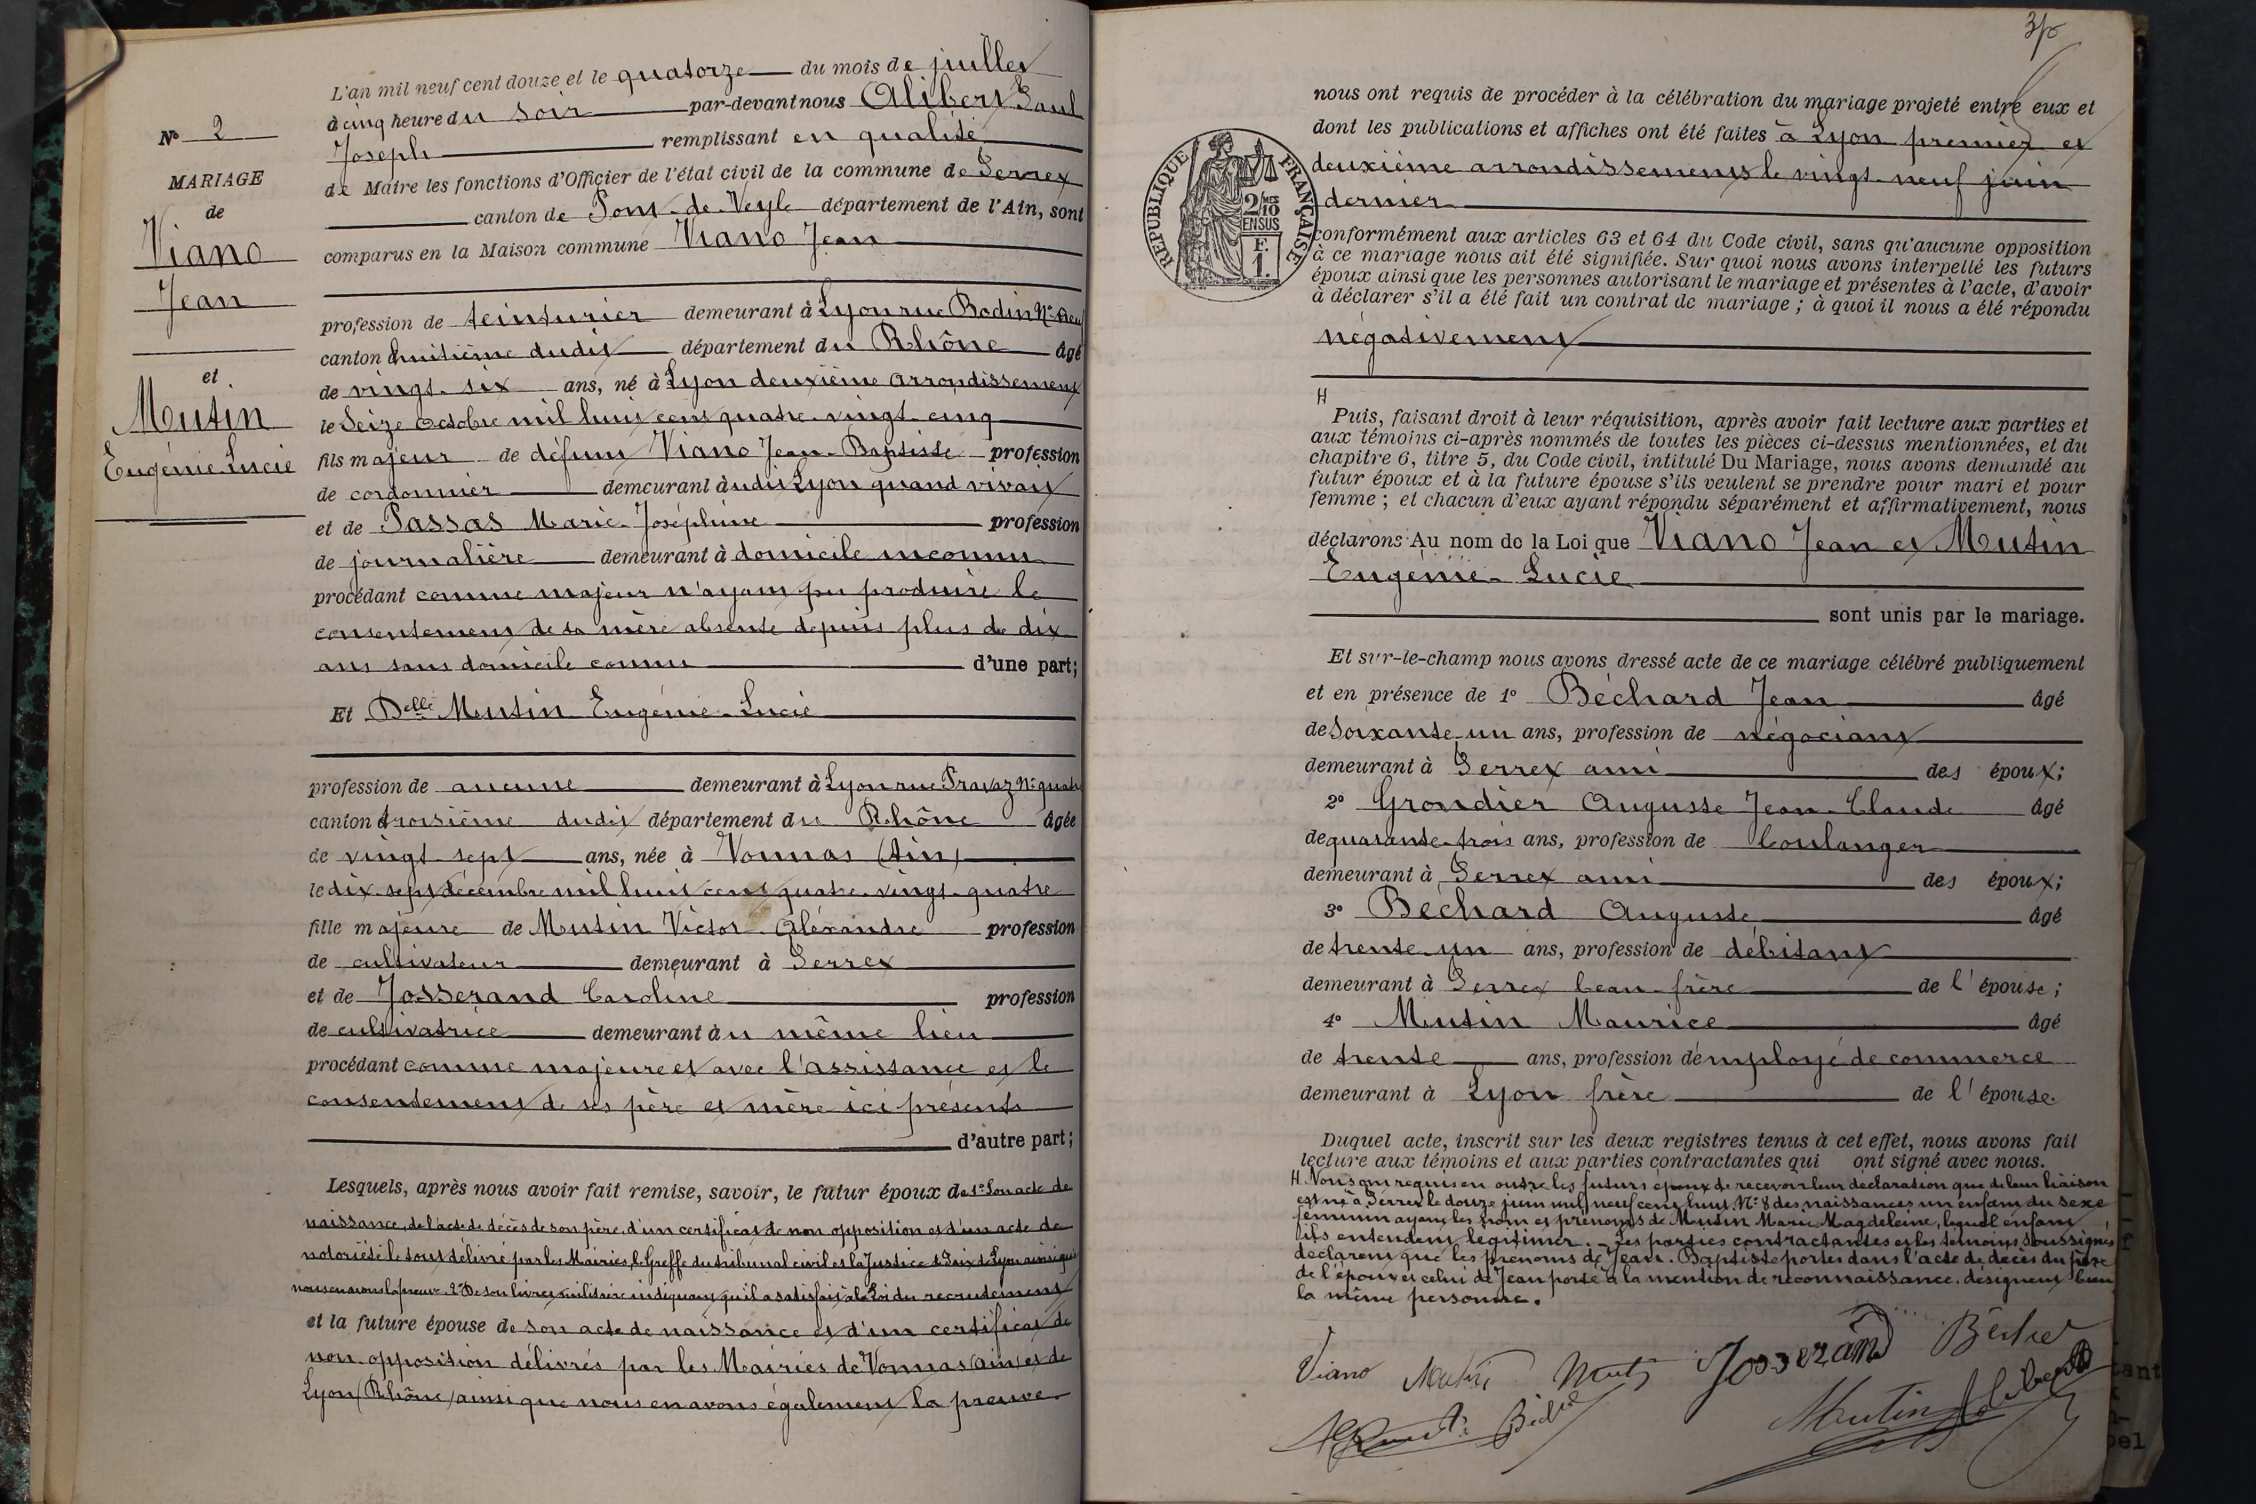 N° 2
MARIAGE
de
Viano
Jean
et
Mutin
Eugénie-Lucie
L'an mil neuf cent douze et le quatorze du mois de juillet
à cinq heure du soir par-devant nous Alibert Paul
Joseph remplissant en qualité
de Maire les fonctions d'Officier de l'état civil de la commune de Perrex
canton de Pont-de-Veyle département de l'Ain, sont
comparus en la Maison commune Viano Jean
profession de teinturier demeurant à Lyon rue Bodin N°
canton huitième dudit département du Rhône âgé
de vingt-six ans, né à Lyon deuxième arrondissement
le Seize Octobre mil huit cent quatre-vingt-cinq
fils majeur de défunt Viano Jean-Baptiste profession
de cordonnier demeurant à udit Lyon quand vivait
et de Passas Marie-Joséphine profession
de journalière demeurant à domicile inconnu
procédant comme majeur n'ayant pu produire le
consentement de sa mère absente depuis plus de dix
ans sans domicile connu d'une part;
Et Delle Mutin Eugénie-Lucie
profession de aucune demeurant à Lyon rue Pravaz N° quatre
canton troisième dudit département du Rhône âgée
de vingt-sept ans, née à Vonnas (Ain)
le dix-sept décembre mil huit cent quatre-vingt-quatre
fille majeure de Mutin Victor Aléxandre profession
de cultivateur demeurant à Perrex
et de Josserand Caroline profession
de cultivatrice demeurant à u même lieu
procédant comme majeure et avec l'assistance et le
consentement de ses père et mère ici présents
d'autre part;
Lesquels, après nous avoir fait remise, savoir, le futur époux de 1° Son acte de
naissance, de l'acte de décès de son père, d'un certificat de non opposition et d'un acte de
notoriété le tout délivré par les Mairies, le Greffe du tribunal civil et la Justice de Paix de Lyon ainsi que
nous en avons la preuve. 2° De son livret militaire indiquant qu'il a satisfait à la Loi du recrutement
et la future épouse de son acte de naissance et d'un certificat de
non-opposition délivrés par les Mairies de Vonnas (Ain) et de
Lyon (Rhône) ainsi que nous en avons également la preuve
nous ont requis de procéder à la célébration du mariage projeté entre eux et
dont les publications et affiches ont été faites à Lyon premier et
deuxième arrondissements le vingt-neuf juin
dernier
REPUBLIQUE FRANÇAISE
2/10
EN SUS
F.
1.
conformément aux articles 63 et 64 du Code civil, sans qu'aucune opposition
à ce mariage nous ait été signifiée. Sur quoi nous avons interpellé les futurs
époux ainsi que les personnes autorisant le mariage et présentes à l'acte, d'avoir
à déclarer s'il a été fait un contrat de mariage ; à quoi il nous a été répondu
négativement
H
Puis, faisant droit à leur réquisition, après avoir fait lecture aux parties et
aux témoins ci-après nommés de toutes les pièces ci-dessus mentionnées, et du
chapitre 6, titre 5, du Code civil, intitulé Du Mariage, nous avons demandé au
futur époux et à la future épouse s'ils veulent se prendre pour mari et pour
femme ; et chacun d'eux ayant répondu séparément et affirmativement, nous
déclarons Au nom de la Loi que Viano Jean et Mutin
Eugénie-Lucie
sont unis par le mariage.
Et sur-le-champ nous avons dressé acte de ce mariage célébré publiquement
et en présence de 1° Béchard Jean âgé
de Soixante-un ans, profession de négociant
demeurant à Perrex ami des époux;
2° Grondier Auguste Jean-Claude âgé
de quarante-trois ans, profession de boulanger
demeurant à Perrex ami des époux;
3° Bechard Auguste âgé
de trente-un ans, profession de débitant
demeurant à Perrex beau-frère de l'épouse;
4° Mutin Maurice âgé
de trente ans, profession d'employé de commerce
demeurant à Lyon frère de l'épouse.
Duquel acte, inscrit sur les deux registres tenus à cet effet, nous avons fait
lecture aux témoins et aux parties contractantes qui ont signé avec nous.
H. Nous ont requis en outre les futurs époux de recevoir leur déclaration que de leur liaison
est né à Perrex le douze juin mil neuf cent huit N° 8 des naissances un enfant du sexe
féminin ayant les nom et prénoms de Mutin Marie Magdeleine, lequel enfant
ils entendent légitimer. - Les parties contractantes et les témoins soussignés
déclarent que les prénoms de Jean-Baptiste portés dans l'acte de décès du père
de l'époux et celui de Jean porté à la mention de reconnaissance, désignent bien
la même personne.
Viano Mutin Josserand
Mutin Alibert